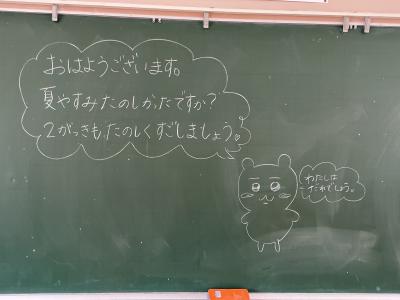 おはようございます。
夏やすみたのしかったですか？
2がっきもたのしくすごしましょう。
わたしは
だれでしょう。